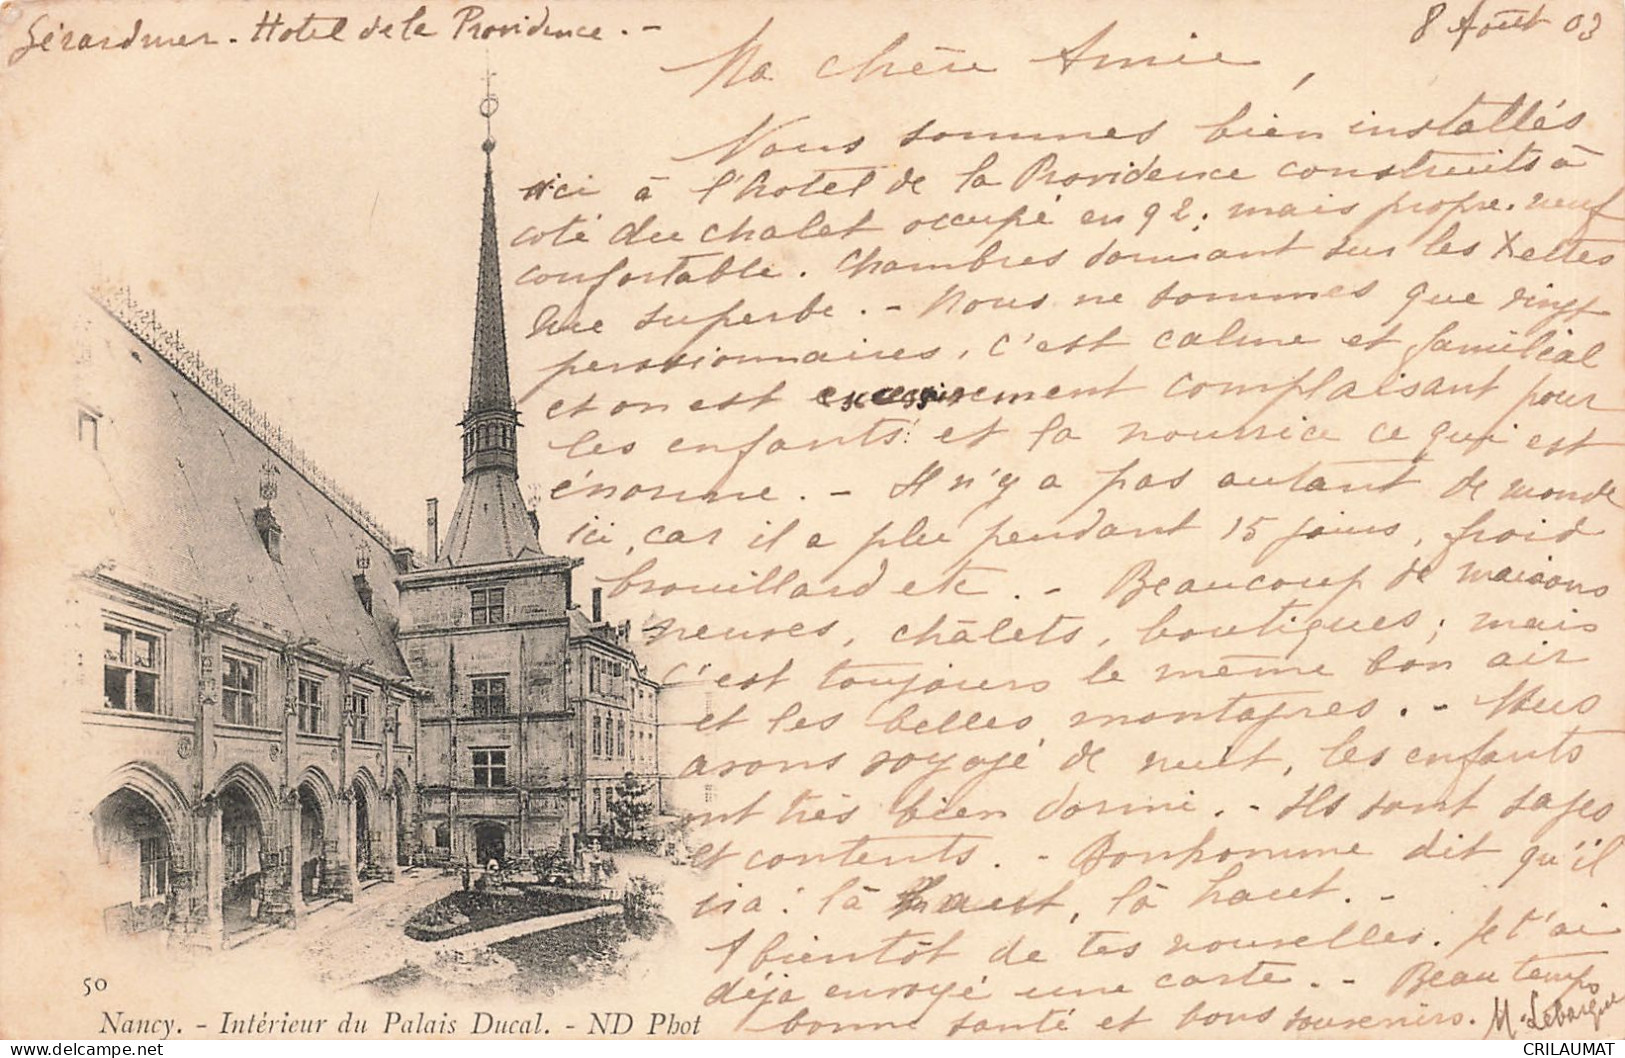 Gérardmer - Hotel de la Providence. -
8 Août 03
Ma chère Amie,
Nous sommes bien installés
ici à l'hotel de la Providence construits à
coté du chalet occupé en 92; mais propre. neuf
confortable. Chambres donnant sur les Xettes
Vue superbe. - Nous ne sommes que vingt
pensionnaires, c'est calme et familial
et on est excessivement complaisant pour
les enfants et la nourrice ce qui est
énorme. - Il n'y a pas autant de monde
ici, car il a plu pendant 15 jours, froid
brouillard etc. - Beaucoup de maisons
neuves, châlets, boutiques; mais
c'est toujours le même bon air
et les belles montagnes. - Nous
avons voyagé de nuit, les enfants
ont très bien dormi. - Ils sont sages
et contents. - Bonhomme dit qu'il
ira: là haut, là haut. -
A bientôt de tes nouvelles. Je t'ai
déja envoyé une carte. - Beau temps
bonne santé et bons souvenirs.
50
Nancy. - Intérieur du Palais Ducal. - ND Phot
CRILAUMAT